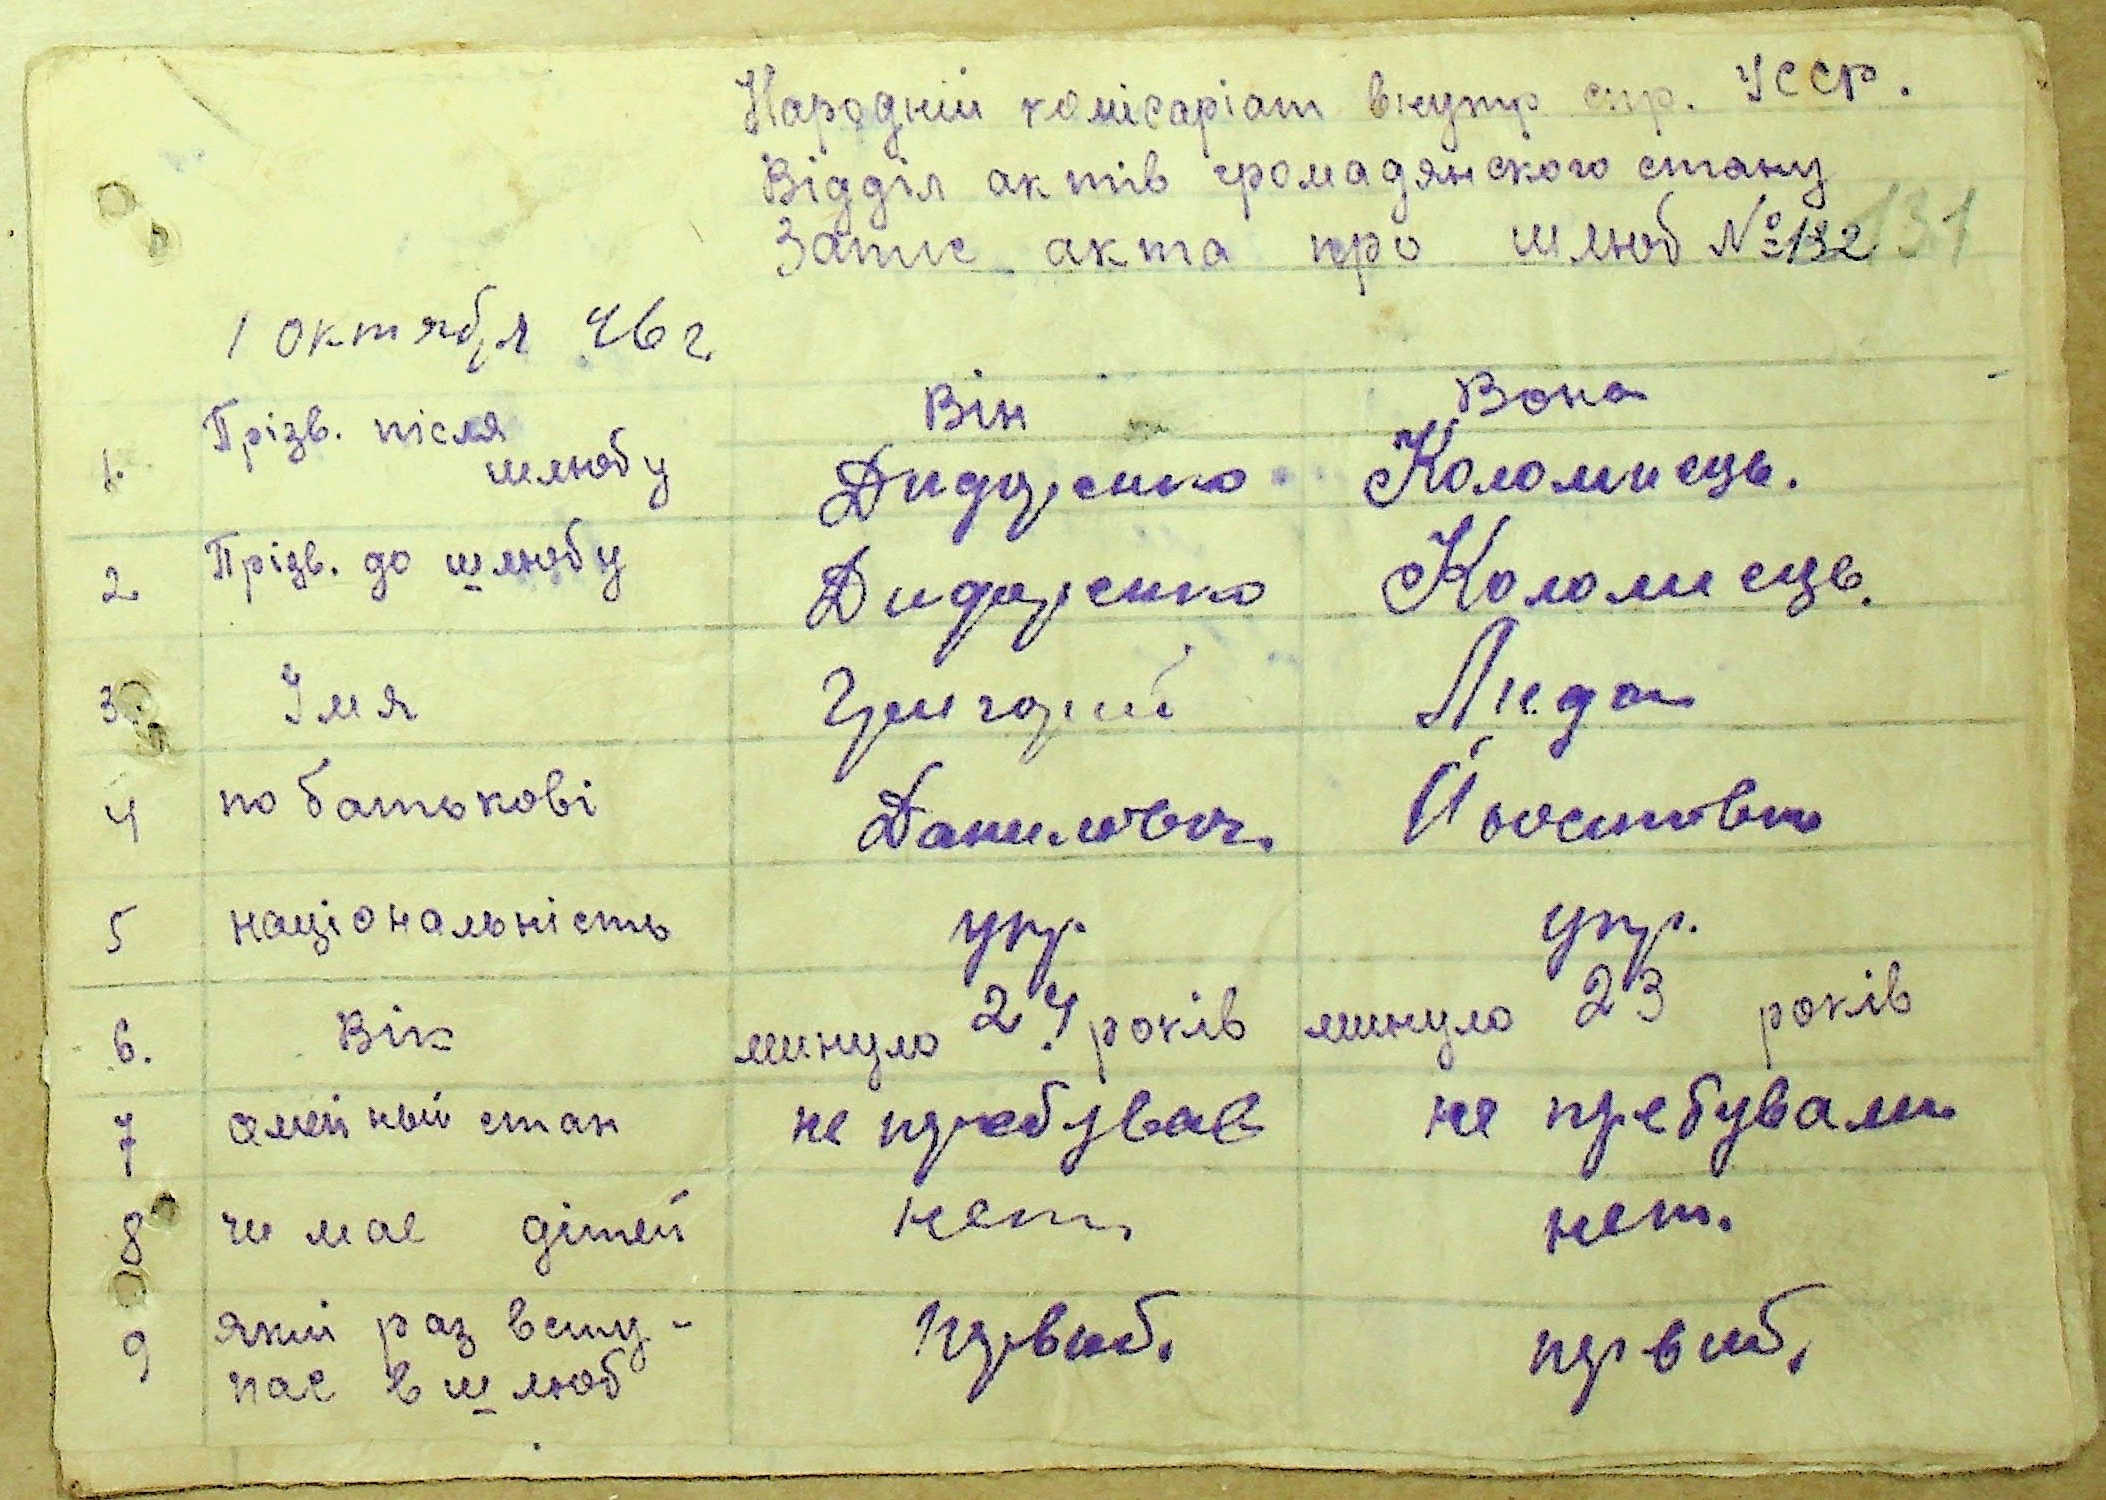 Народній комісаріат внутр спр. УССР.
Відділ актів громадянского стану
Запис акта про шлюб №132 131
1 октября 46 г
Він Вона
1. Прізв. після шлюбу Дидаренко Коломиець.
2 Прізв. до шлюбу Дидаренко Коломиець.
3 Імя Григорий Лида
4 по батькові Данилович.
5 національність укр. укр.
6. Вік минуло 24 років минуло 23 років
7 семейный стан не пребував не пребувала
8 чи має дітей нет. нет.
9 який раз всту-
пає в шлюб